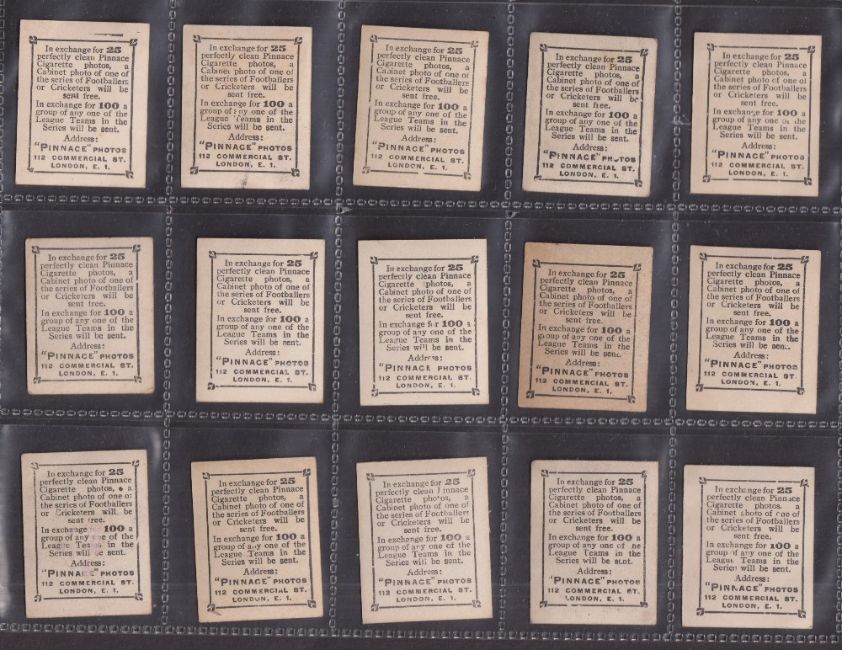 In exchange for 25
perfectly clean Pinnace
Cigarette photos, a
Cabinet photo of one of
the series of Footballers
or Cricketers will be
sent free.
In exchange for 100 a
group of any one of the
League Teams in the
Series will be sent.
Address:
"PINNACE" PHOTOS
112 COMMERCIAL ST.
LONDON, E. 1.
In exchange for 25
perfectly clean Pinnace
Cigarette photos, a
Cabinet photo of one of
the series of Footballers
or Cricketers will be
sent free.
In exchange for 100 a
group of any one of the
League Teams in the
Series will be sent.
Address:
"PINNACE" PHOTOS
112 COMMERCIAL ST.
LONDON, E. 1.
In exchange for 25
perfectly clean Pinnace
Cigarette photos, a
Cabinet photo of one of
the series of Footballers
or Cricketers will be
sent free.
In exchange for 100 a
group of any one of the
League Teams in the
Series will be sent.
Address:
"PINNACE" PHOTOS
112 COMMERCIAL ST.
LONDON, E. 1.
In exchange for 25
perfectly clean Pinnace
Cigarette photos, a
Cabinet photo of one of
the series of Footballers
or Cricketers will be
sent free.
In exchange for 100 a
group of any one of the
League Teams in the
Series will be sent.
Address:
"PINNACE" PHOTOS
112 COMMERCIAL ST.
LONDON, E. 1.
In exchange for 25
perfectly clean Pinnace
Cigarette photos, a
Cabinet photo of one of
the series of Footballers
or Cricketers will be
sent free.
In exchange for 100 a
group of any one of the
League Teams in the
Series will be sent.
Address:
"PINNACE" PHOTOS
112 COMMERCIAL ST.
LONDON, E. 1.
In exchange for 25
perfectly clean Pinnace
Cigarette photos, a
Cabinet photo of one of
the series of Footballers
or Cricketers will be
sent free.
In exchange for 100 a
group of any one of the
League Teams in the
Series will be sent.
Address:
"PINNACE" PHOTOS
112 COMMERCIAL ST.
LONDON, E. 1.
In exchange for 25
perfectly clean Pinnace
Cigarette photos, a
Cabinet photo of one of
the series of Footballers
or Cricketers will be
sent free.
In exchange for 100 a
group of any one of the
League Teams in the
Series will be sent.
Address:
"PINNACE" PHOTOS
112 COMMERCIAL ST.
LONDON, E. 1.
In exchange for 25
perfectly clean Pinnace
Cigarette photos, a
Cabinet photo of one of
the series of Footballers
or Cricketers will be
sent free.
In exchange for 100 a
group of any one of the
League Teams in the
Series will be sent.
Address:
"PINNACE" PHOTOS
112 COMMERCIAL ST.
LONDON, E. 1.
In exchange for 25
perfectly clean Pinnace
Cigarette photos, a
Cabinet photo of one of
the series of Footballers
or Cricketers will be
sent free.
In exchange for 100 a
group of any one of the
League Teams in the
Series will be sent.
Address:
"PINNACE" PHOTOS
112 COMMERCIAL ST.
LONDON, E. 1.
In exchange for 25
perfectly clean Pinnace
Cigarette photos, a
Cabinet photo of one of
the series of Footballers
or Cricketers will be
sent free.
In exchange for 100 a
group of any one of the
League Teams in the
Series will be sent.
Address:
"PINNACE" PHOTOS
112 COMMERCIAL ST.
LONDON, E. 1.
In exchange for 25
perfectly clean Pinnace
Cigarette photos, a
Cabinet photo of one of
the series of Footballers
or Cricketers will be
sent free.
In exchange for 100 a
group of any one of the
League Teams in the
Series will be sent.
Address:
"PINNACE" PHOTOS
112 COMMERCIAL ST.
LONDON, E. 1.
In exchange for 25
perfectly clean Pinnace
Cigarette photos, a
Cabinet photo of one of
the series of Footballers
or Cricketers will be
sent free.
In exchange for 100 a
group of any one of the
League Teams in the
Series will be sent.
Address:
"PINNACE" PHOTOS
112 COMMERCIAL ST.
LONDON, E. 1.
In exchange for 25
perfectly clean Pinnace
Cigarette photos, a
Cabinet photo of one of
the series of Footballers
or Cricketers will be
sent free.
In exchange for 100 a
group of any one of the
League Teams in the
Series will be sent.
Address:
"PINNACE" PHOTOS
112 COMMERCIAL ST.
LONDON, E. 1.
In exchange for 25
perfectly clean Pinnace
Cigarette photos, a
Cabinet photo of one of
the series of Footballers
or Cricketers will be
sent free.
In exchange for 100 a
group of any one of the
League Teams in the
Series will be sent.
Address:
"PINNACE" PHOTOS
112 COMMERCIAL ST.
LONDON, E. 1.
In exchange for 25
perfectly clean Pinnace
Cigarette photos, a
Cabinet photo of one of
the series of Footballers
or Cricketers will be
sent free.
In exchange for 100 a
group of any one of the
League Teams in the
Series will be sent
Address:
"PINNACE" PHOTOS
112 COMMERCIAL ST.
LONDON, E. 1.